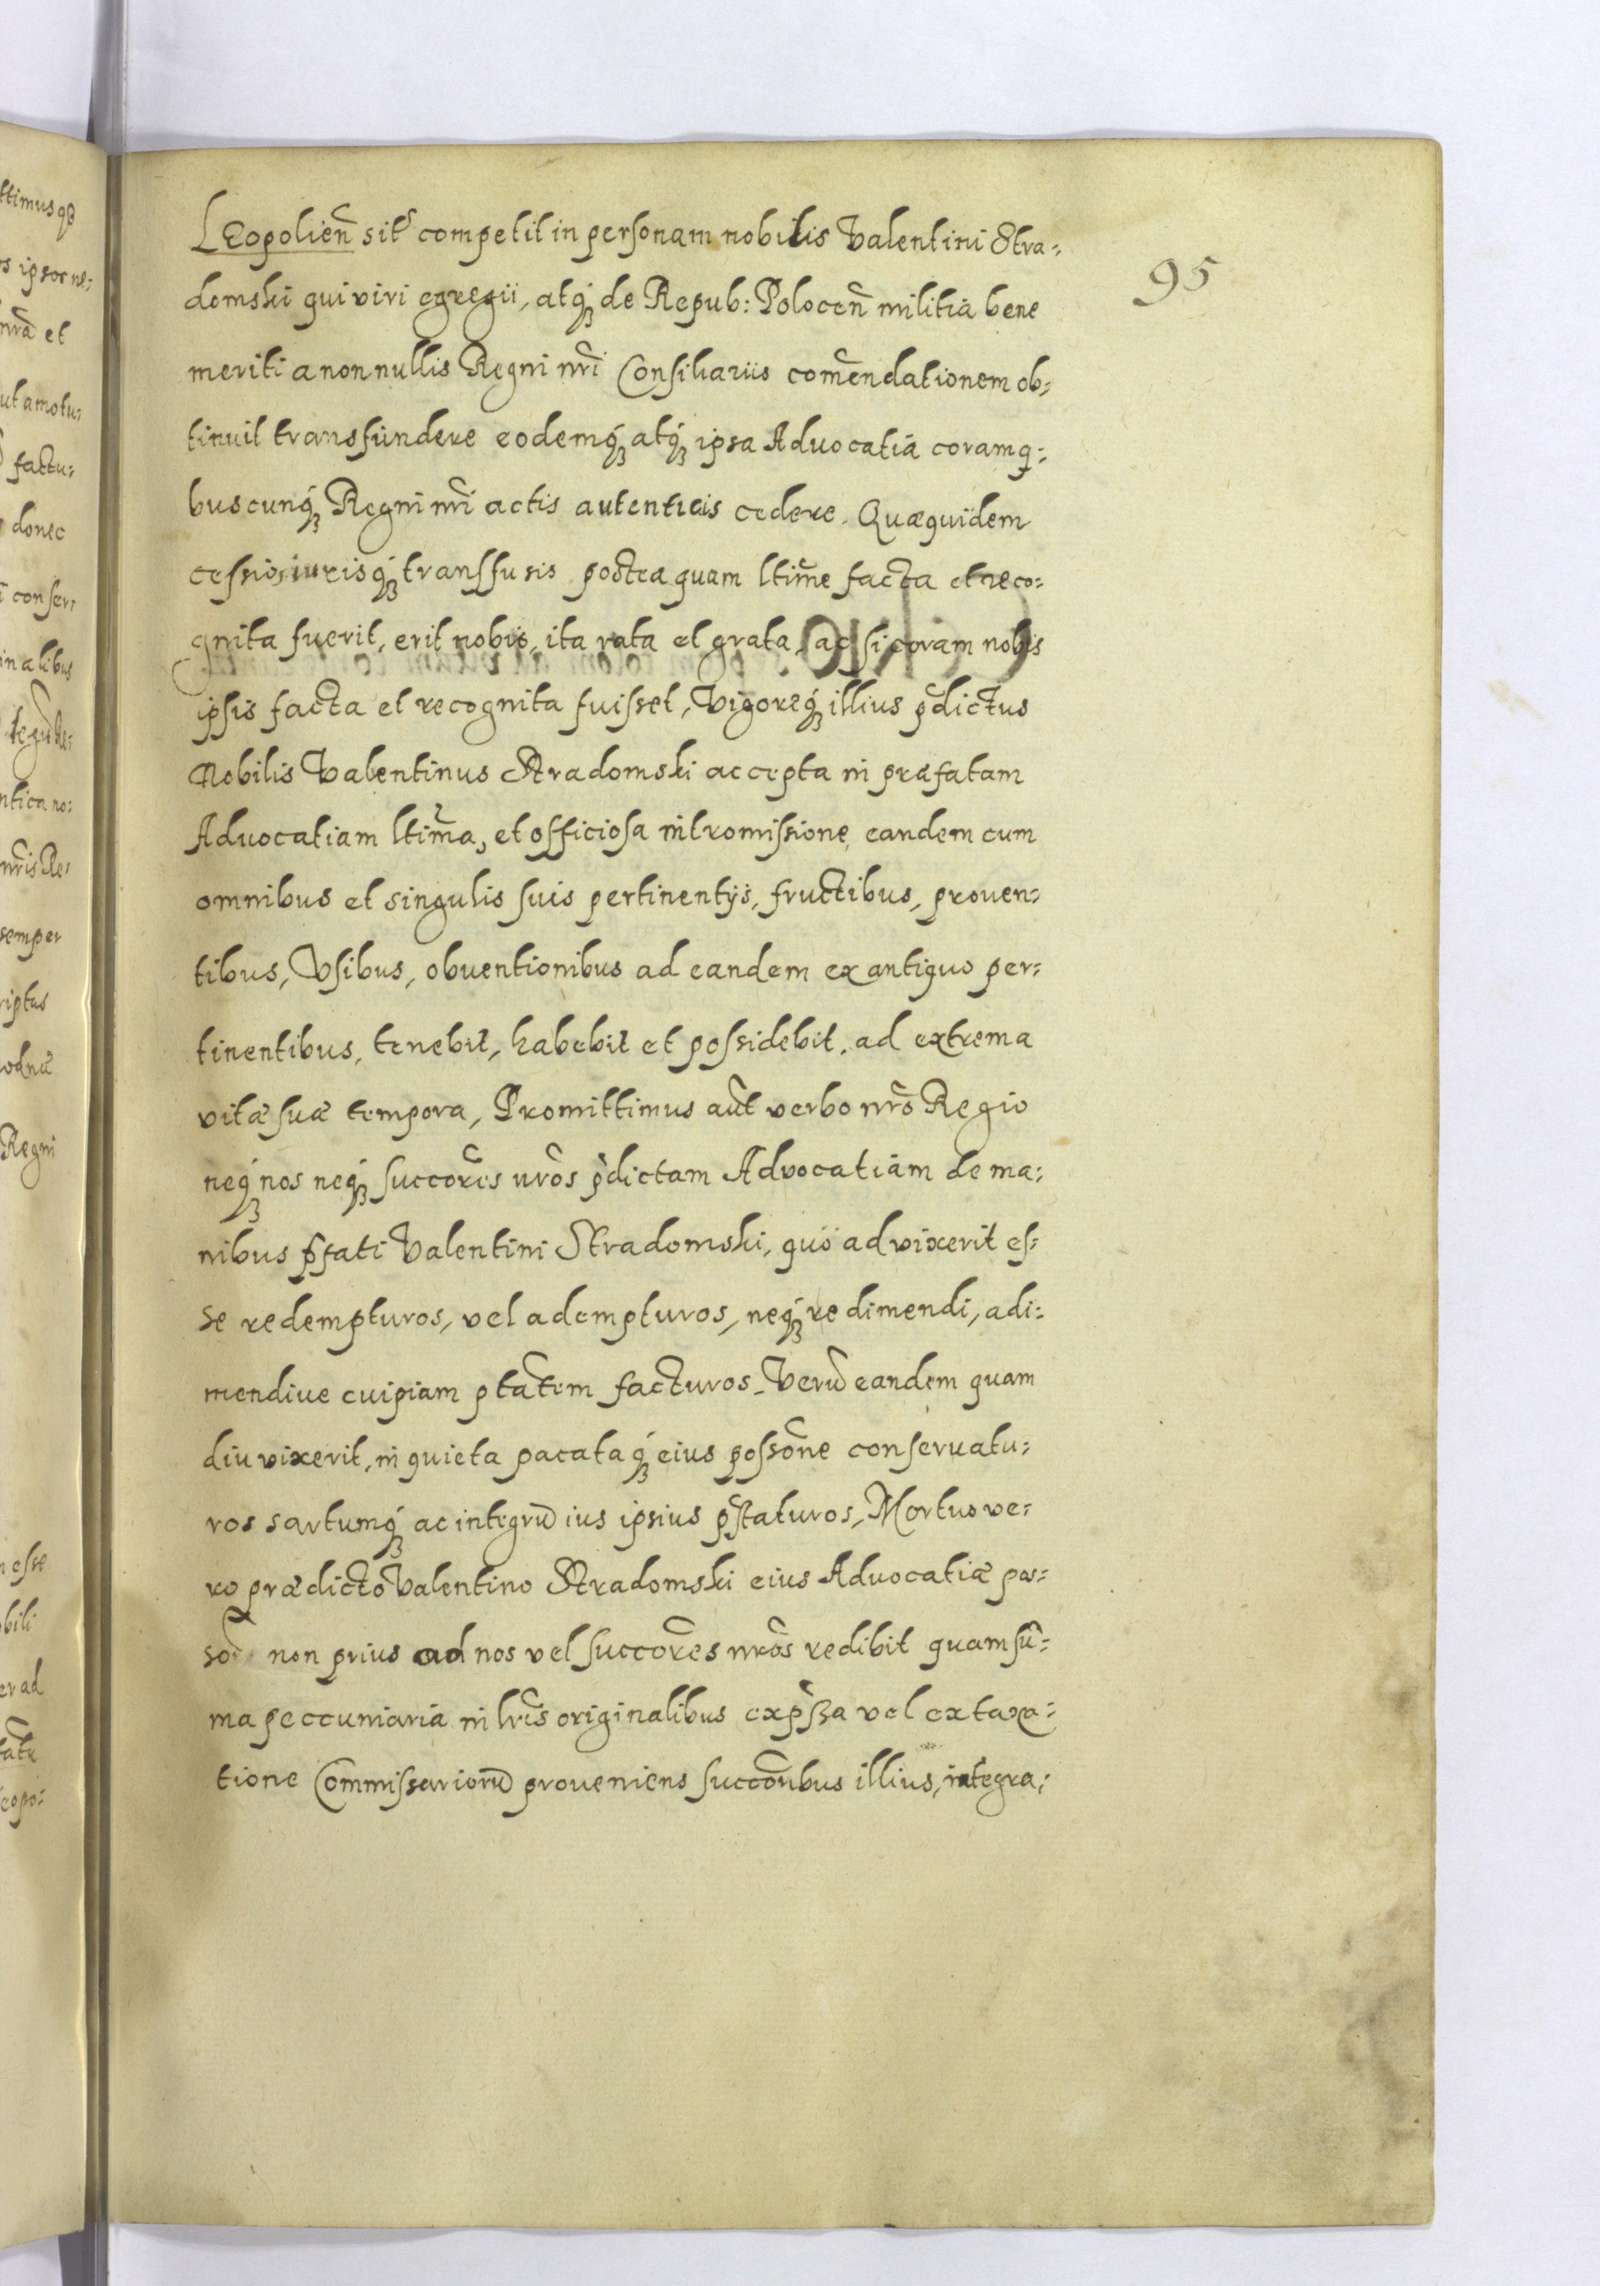 95
Leopolien̄ sitꝰ competit in personam nobilis Valentini Stra:
domski qui viri egregii, atqꝫ de Repub: Polocen̄ militia bene
meriti a nonnullis Regni nrī Consiliariis com̄endationem ob:
tinuit transfundere eodemqꝫ atqꝫ ipsa Advocatia coram q:
buscunqꝫ Regni nrī actis autenticis cedere. Quæquidem
cessio, iurisqꝫ transfusis posteaquam ltim̄e facta et reco:
gnita fuerit, erit nobis, ita rata et grata, ac si coram nobis
ipsis facta et recognita fuisset, Vigoreqꝫ illius p̄dictus
Nobilis Valentinus Stradomski accepta in præfatam
Advocatiam ltim̄a, et officiosa intromissione, eandem cum
omnibus et singulis suis pertinentijs, fructibus, proven:
tibus, Vsibus, obventionibus ad eandem ex antiquo per:
tinentibus, tenebit, habebit et possidebit, ad extrema
vitæ suæ tempora, Promittimus aūt verbo nrō Regio
neqꝫ nos neqꝫ succor̄es nrōs p̄dictam Advocatiam de ma:
nibus p̄fati Valentini Stradomski, quo ad vixerit es:
se redempturos, vel adempturos, neqꝫ redimendi, adi:
mendive cuipiam ptāt̄em facturos. Verū eandem quam
diu vixerit, in quieta pacataqꝫ eius possōne conservatu:
ros sartumqꝫ ac integrū ius ipsius p̄staturos, Mortuo ve:
ro prædicto Valentino Stradomski eius Advocatiæ pos:
so non prius ad nos vel succor̄es nrōs redibit quam sū:
ma peccuniaria in lrīs originalibus exp̄ssa vel ex taxa:
tione Commissariorū proveniens succor̄ibus illius, integra: